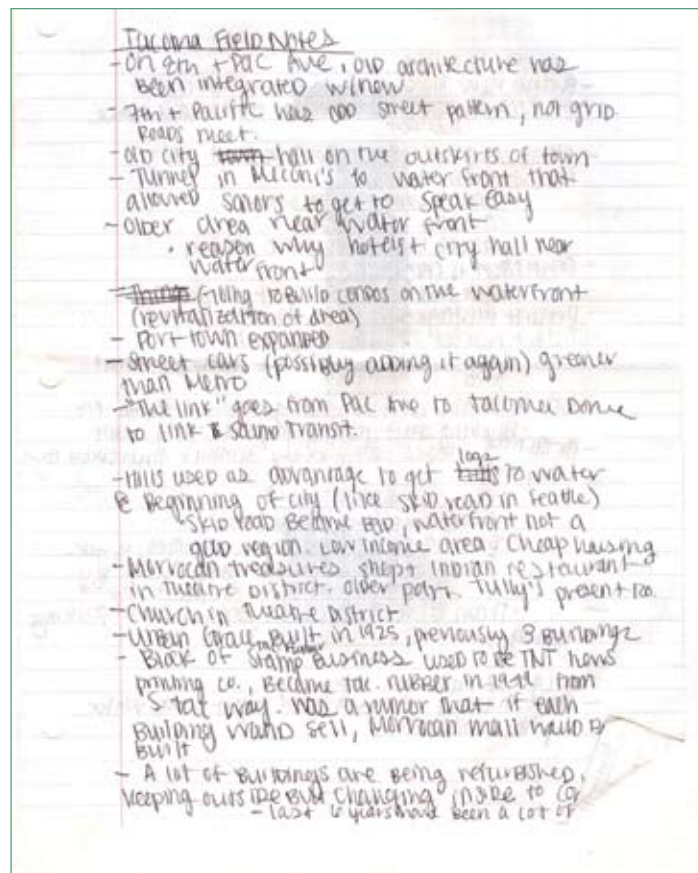 Tacoma Field Notes
- On 9th + Pac Ave, old architecture has
been integrated w/new
- 7th + Pacific has odd street pattern, not grid
Roads meet.
- old city town hall on the outskirts of town
- Tunnel in Meconi's to water front that
allowed sailors to get to speak easy
- older area near water front
• reason why hotels + city hall near
water front
- Things (-Trying to Build condos on the waterfront
(revitalization of area)
- Port-town expanded
- Street cars (possibly adding it again) greener
than Metro
- "The link" goes from Pac Ave to Tacoma Dome
to link & Sound Transit.
- Hills used as advantage to get logs to water
@ Beginning of city (like skid road in Seattle)
- Skid road Became Bad, waterfront not a
good region. Low income area Cheap housing
- Morrocan treasures shop + Indian restaurant
in Theatre District. older part. Tully's present too.
- Church in Theatre District
- Urban Grace Built in 1925, previously 3 Buildings
- Block of Stamp Business used to be TNT news
printing co., Became Tac. rubber in from
way. has a rumor that if each
Building would sell, Morrocan mall would B
Built
- A lot of Buildings are Being refurbished,
keeping outside But changing inside to
- last 6 years have been a lot of